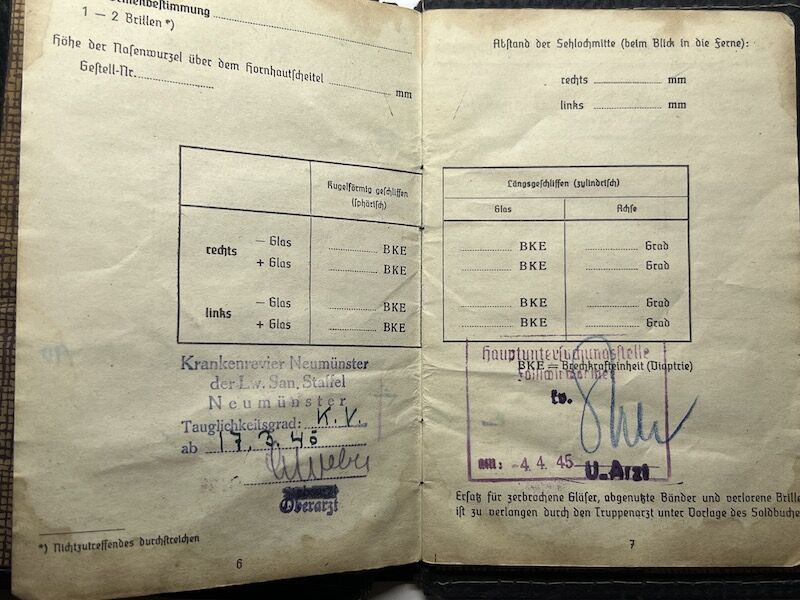 enbestimmung
1 — 2 Brillen *)
Höhe der Nasenwurzel über dem Hornhautscheitel mm
Gestell-Nr.
Kugelförmig geschliffen
(sphärisch)
rechts — Glas BKE
+ Glas BKE
links — Glas BKE
+ Glas BKE
Krankenrevier Neumünster
der Lw. San. Staffel
Neumünster
Tauglichkeitsgrad: K.V.
ab 17.3.45
Oberarzt
*) Nichtzutreffendes durchstreichen
6
Abstand der Sehlochmitte (beim Blick in die Ferne):
rechts mm
links mm
Längsgeschliffen (zylindrisch)
Glas Achse
BKE Grad
BKE Grad
BKE Grad
BKE Grad
Hauptuntersuchungsstelle
BKE = Brechkrafteinheit (Dioptrie)
kv.
am: -4. 4. 45
U.Arzt
Ersatz für zerbrochene Gläser, abgenutzte Bänder und verlorene Brille
ist zu verlangen durch den Truppenarzt unter Vorlage des Soldbuche
7